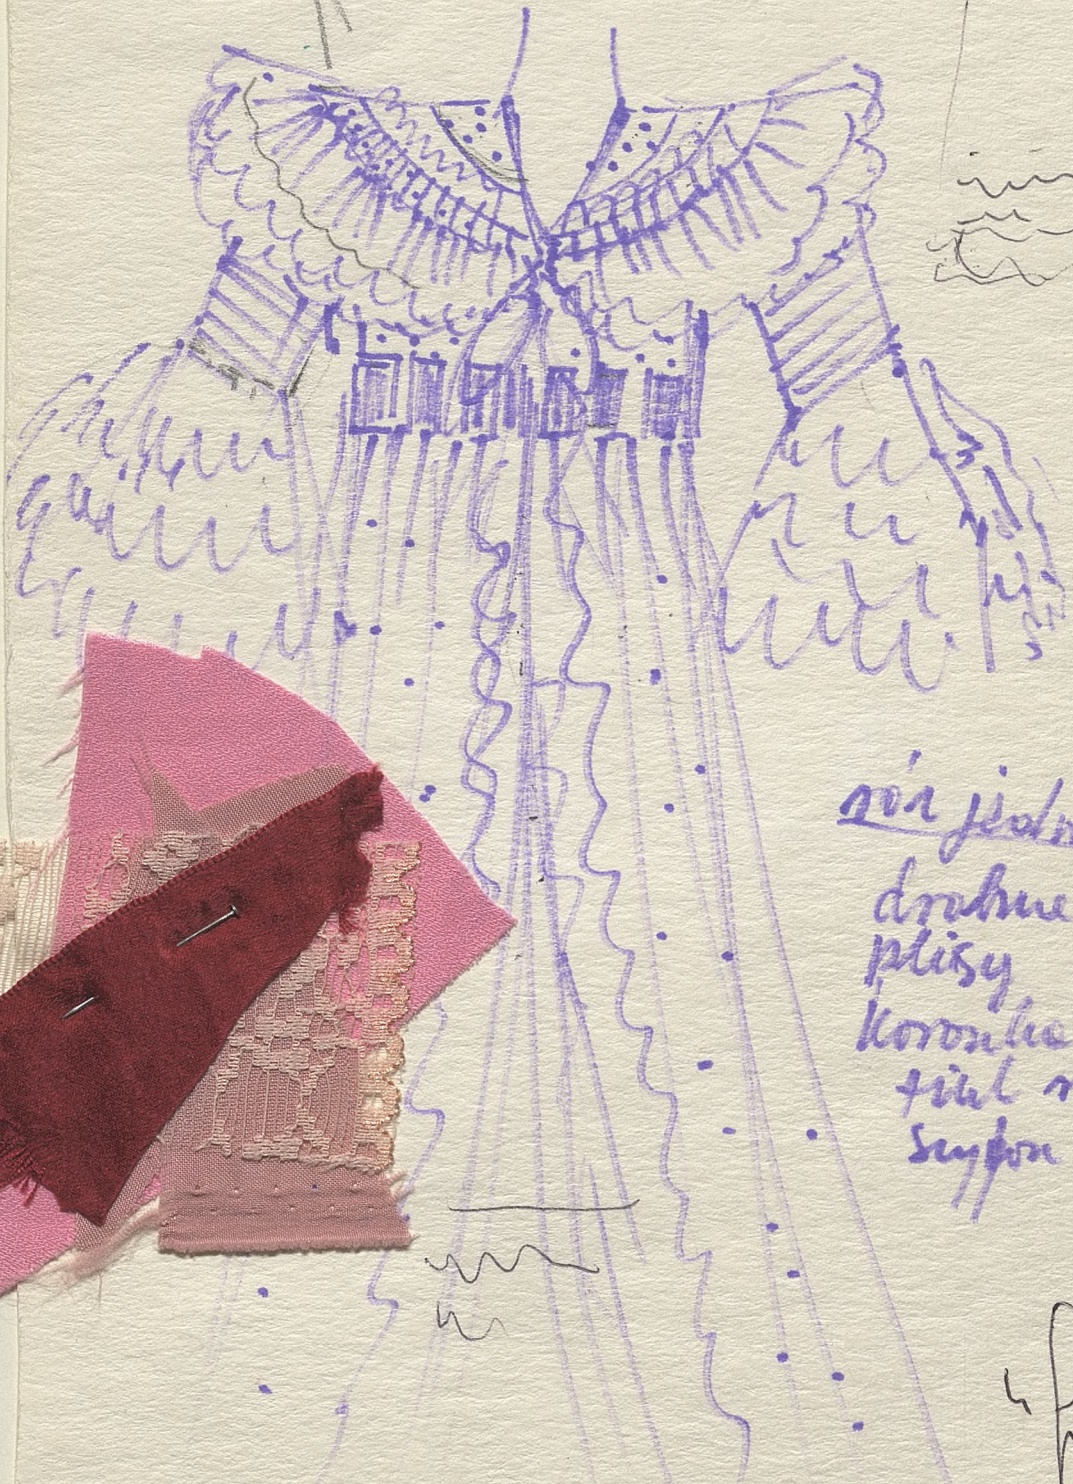 róż jedn
drobne
plisy
koronka
tiul
szyfon